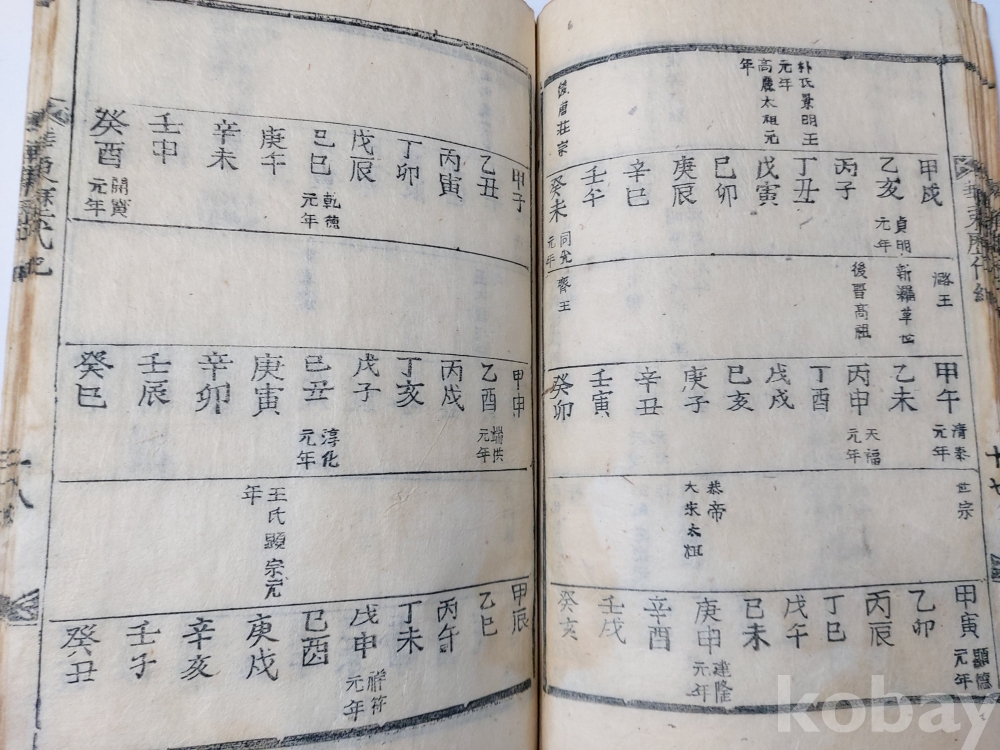 華東歷代紀
十七
朴氏景明王元年
高麗太祖元年
後唐莊宗
甲戌
乙亥 貞明元年
丙子
丁丑
戊寅
己卯
庚辰
辛巳
壬午
癸未 同光元年
潞王
新羅革世
後晉高祖
齊王
甲午 清泰元年
乙未
丙申 天福元年
丁酉
戊戌
己亥
庚子
辛丑
壬寅
癸卯
世宗
恭帝
大宋太祖
甲寅 顯德元年
乙卯
丙辰
丁巳
戊午
己未
庚申 建隆元年
辛酉
壬戌
癸亥
甲子
乙丑
丙寅
丁卯
戊辰
己巳 乾德元年
庚午
辛未
壬申
癸酉 開寶元年
甲申
乙酉 端拱元年
丙戌
丁亥
戊子
己丑 淳化元年
庚寅
辛卯
壬辰
癸巳
王氏顯宗元年
甲辰
乙巳
丙午
丁未
戊申 祥符元年
己酉
庚戌
辛亥
壬子
癸丑
華東歷代紀
十八
kobay